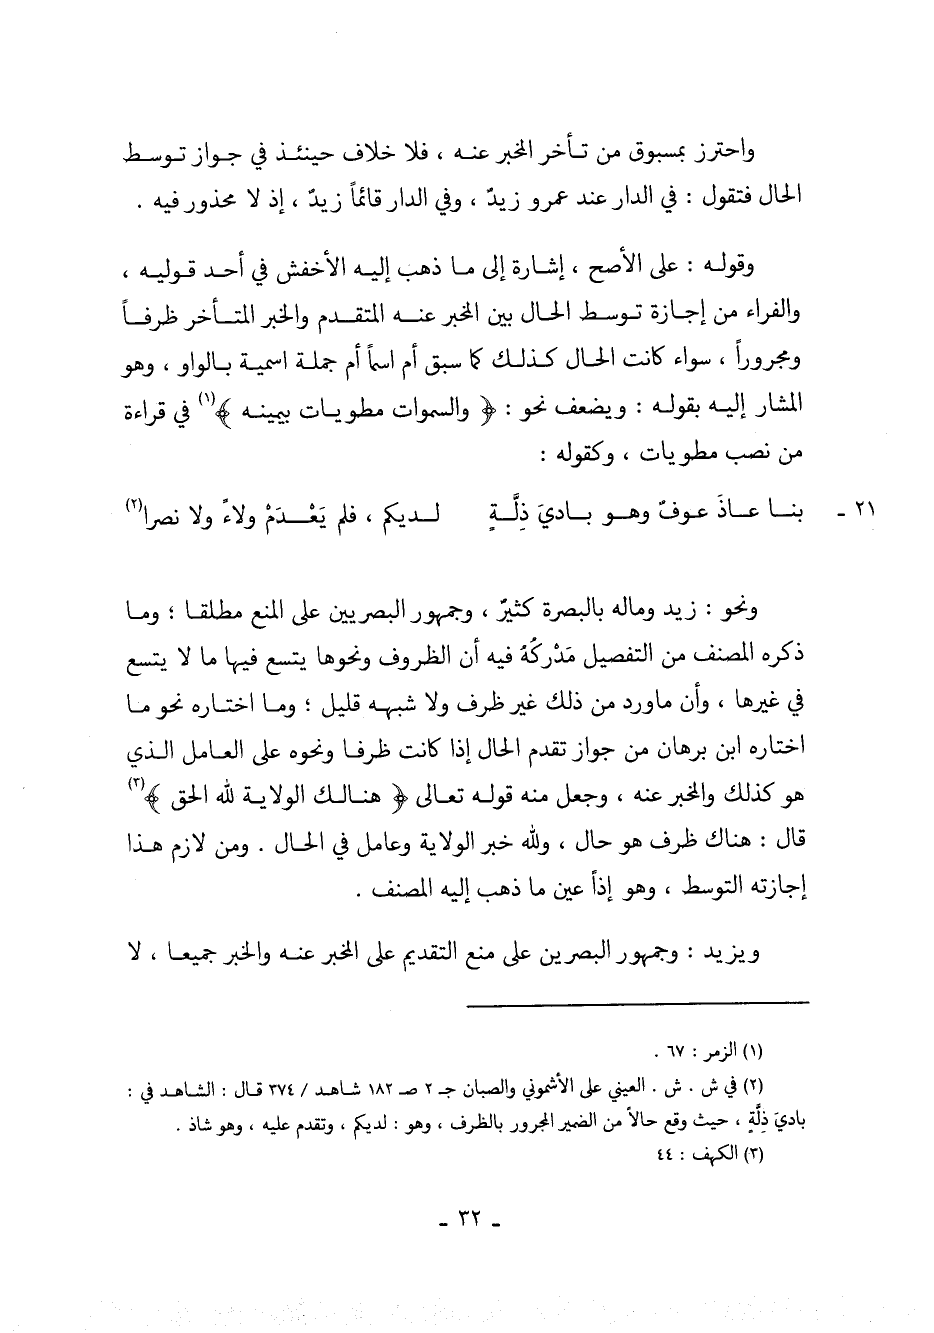 واحترز بمسبوق من تأخر المخبر عنه ، فلا خلاف حينئذ في جواز توسط
الحال فتقول : في الدار عند عمرو زيدٌ ، وفي الدار قائماً زيدٌ ، إذ لا محذور فيه .
وقوله : على الأصح ، إشارة إلى ما ذهب إليه الأخفش في أحد قوليه ،
والفراء من إجازة توسط الحال بين المخبر عنه المتقدم والخبر المتأخر ظرفاً
ومجروراً ، سواء كانت الحال كذلك كما سبق أم اسماً أم جملة اسمية بالواو ، وهو
المشار إليه بقوله : ويضعف نحو : ﴿ والسموات مطويات بيمينه ﴾(١) في قراءة
من نصب مطويات ، وكقوله :
٢١ - بنا عاذَ عوفٌ وهو باديَ ذِلَّةٍ لديكم ، فلم يَعْدَمْ ولاءً ولا نصرا(٢)
ونحو : زيد وماله بالبصرة كثيرٌ ، وجمهور البصريين على المنع مطلقا ؛ وما
ذكره المصنف من التفصيل مَدْركُهُ فيه أن الظروف ونحوها يتسع فيها ما لا يتسع
في غيرها ، وأن ماورد من ذلك غير ظرف ولا شبهه قليل ؛ وما اختاره نحو ما
اختاره ابن برهان من جواز تقدم الحال إذا كانت ظرفا ونحوه على العامل الذي
هو كذلك والمخبر عنه ، وجعل منه قوله تعالى ﴿ هنالك الولاية لله الحق ﴾(٣)
قال : هناك ظرف هو حال ، ولله خبر الولاية وعامل في الحال . ومن لازم هذا
إجازته التوسط ، وهو إذاً عين ما ذهب إليه المصنف .
ويزيد : وجمهور البصرين على منع التقديم على المخبر عنه والخبر جميعا ، لا
(١) الزمر : ٦٧ .
(٢) في ش . ش . العيني على الأشموني والصبان جـ ٢ صـ ١٨٢ شاهد / ٣٧٤ قال : الشاهد في :
باديَ ذِلَّةٍ ، حيث وقع حالاً من الضمير المجرور بالظرف ، وهو : لديكم ، وتقدم عليه ، وهو شاذ .
(٣) الكهف : ٤٤
- ٣٢ -